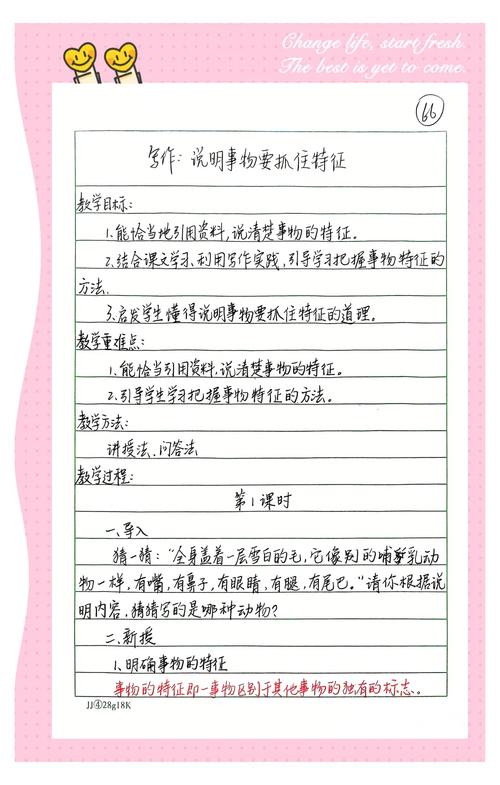 Change life, start fresh.
The best is yet to come.
66
写作：说明事物要抓住特征
教学目标：
1.能恰当地引用资料，说清楚事物的特征。
2.结合课文学习、利用写作实践，引导学习把握事物特征的
方法.
3.启发学生懂得说明事物要抓住特征的道理。
教学重难点：
1.能恰当引用资料，说清楚事物的特征。
2.引导学生学习把握事物特征的方法。
教学方法：
讲授法、问答法
教学过程：
第1课时
一、导入
猜一猜：“全身盖着一层雪白的毛，它像别的哺乳动
物一样，有嘴，有鼻子，有眼睛，有腿，有尾巴。”请你根据说
明内容，猜猜写的是哪种动物？
二、新授
1.明确事物的特征
事物的特征即一事物区别于其他事物的独有的标志。
JJ④28g18K